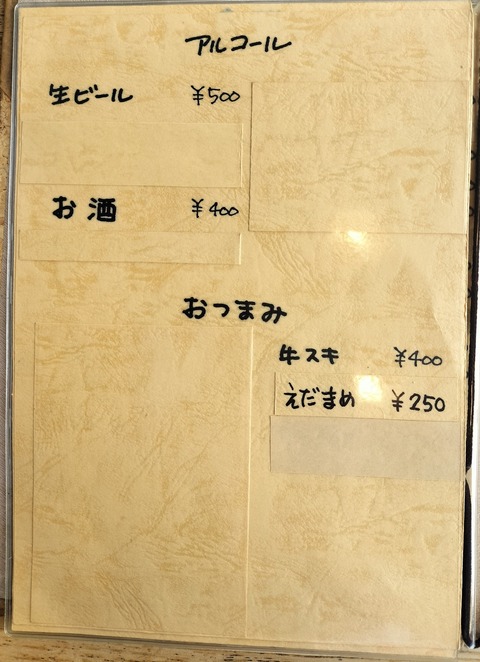 アルコール
生ビール ¥500
お酒 ¥400
おつまみ
牛スキ ¥400
えだまめ ¥250